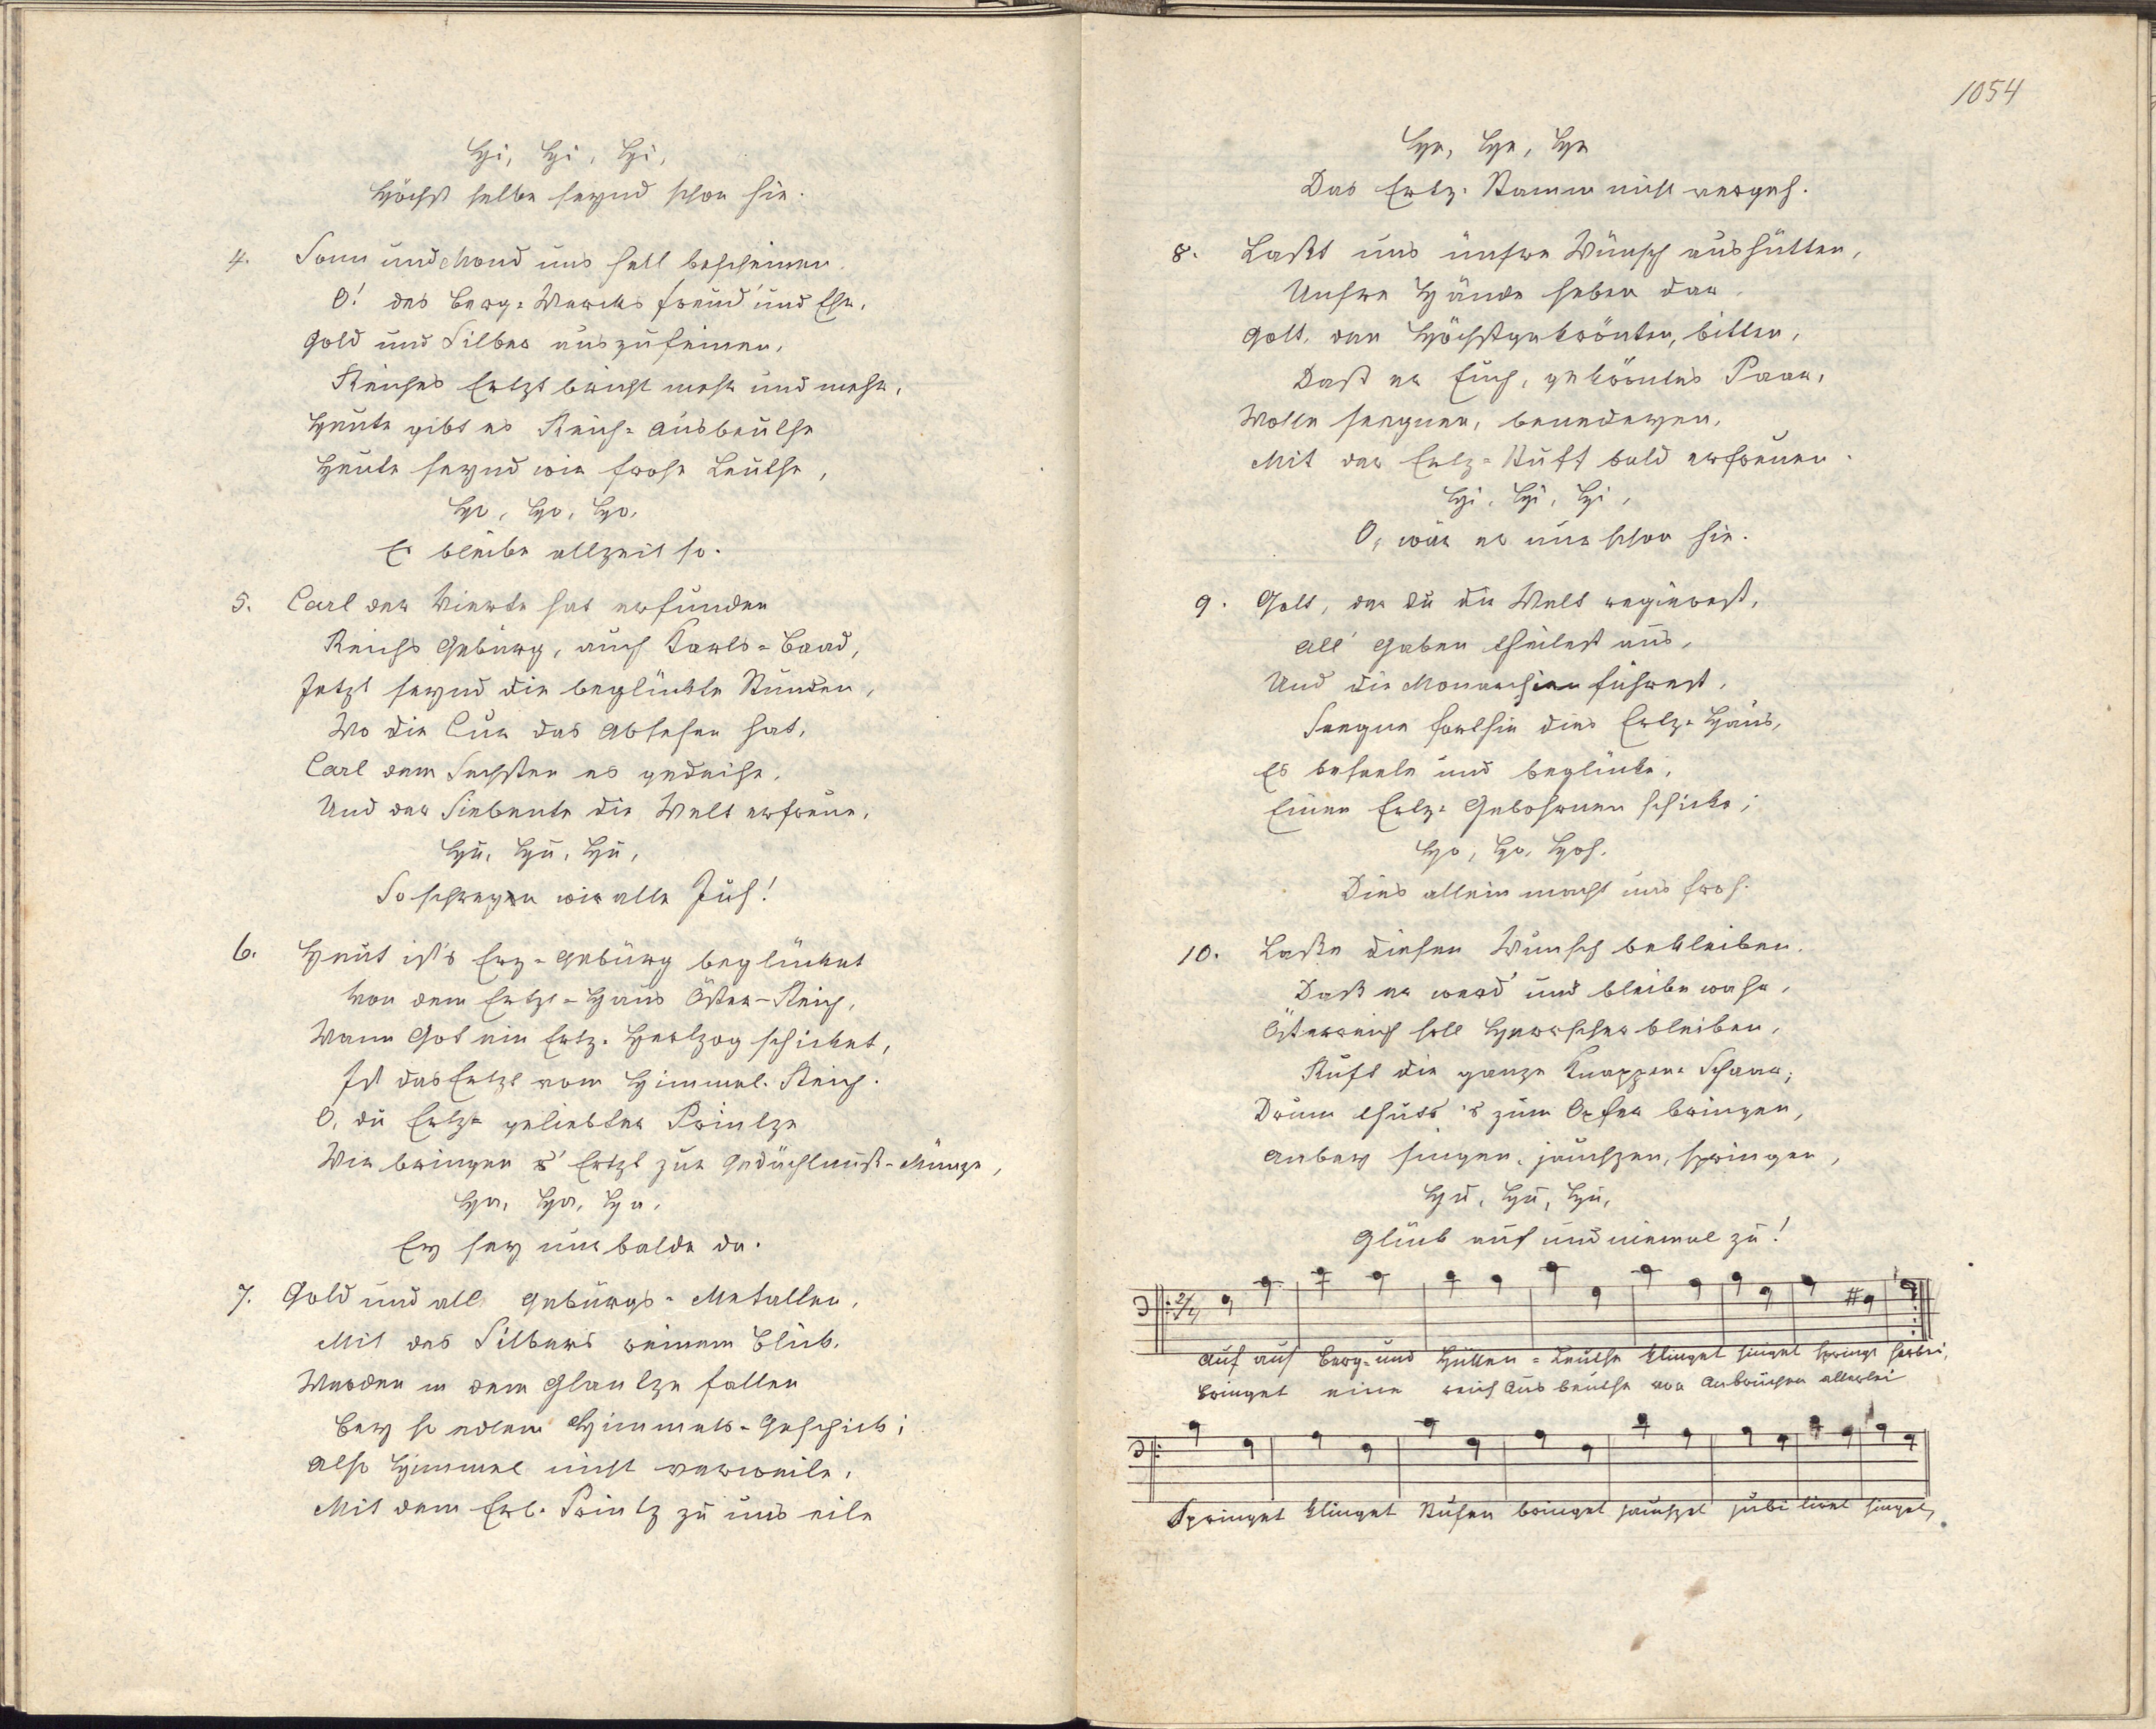 Hi, Hi, Hi,
Höchst selbe seynd schon hie.
4. Sonn und Mond uns hell bescheinen
O! des Berg-Wercks Freud' und Ehr,
Gold und Silber auszufeinen,
Reiches Ertzt bricht mehr und mehr,
Heute gibt es Reich-Ausbeuthe
Heute seynd wir frohe Leuthe,
Ho, Ho, Ho,
Es bleibe allzeit so.
5. Carl der Vierte hat erfunden
Reichs Gebürg, auch Karls-Baad,
Jetzt seynd die beglückte Stunden,
Wo die Cur das Absehen hat,
Carl dem Sechsten es gedeihe,
Und der Siebente die Welt erfreue,
Hu, Hu, Hu,
So schreyen wir alle Juh!
6. Heut ist's Erz-Gebürg beglücket
Von dem Ertzt-Haus Öster-Reich,
Wann Got ein Ertz-Hertzog schicket,
Ist das Ertzt vom Himmel-Reich.
O, du Ertz-geliebter Printze
Wir bringen 's Ertzt zur Gedächtnuß-Münze,
Ha, Ha, Ha,
Er sey nur balde da.
7. Gold und all Gebürgs-Metallen,
Mit des Silbers reinem Blick,
Werden in dem Glantze fallen
Bey so edlem Himmels-Geschick;
Also Himmel nicht verweile,
Mit dem Erb-Printz zu uns eile
1054
He, He, He
Das Ertz-Stamm nicht vergeh.
8. Laßt uns unsre Wünsch aushütten,
Unsre Hände heben dar
Gott, den Höchstgekrönten, bitten,
Daß er Euch, gekröntes Paar,
Wolle seegnen, benedeyen,
Mit der Ertz-Stuff bald erfreuen.
Hi, Hi, Hi,
O, wär er nur schon hie.
9. Gott, der du die Welt regierest,
All' Gaben theilest aus,
Und die Monarchien führest,
Seegne forthin dies Ertz-Haus,
Es beseele und beglücke,
Einen Ertz-Gebohrnen schicke;
Ho, Ho, Hoh,
Dies allein macht uns froh.
10. Laße diesen Wunsch bekleiben,
Daß er werd' und bleibe wahr,
Österreich soll Herrscher bleiben,
Ruft die ganze Knappen-Schaar;
Drum thuts 's zum Opfer bringen,
Anbey singen, jauchzen, springen,
Hu, Hu, Hu,
Glück auf und niemal zu!
2/4
Auf auf Berg-und Hütten-Leuthe klinget singet springt herbei,
bringet eine reich Ausbeuthe von Anbrüchen allerlei
Springet klinget Stufen bringet jauchzet jubi liret singet,